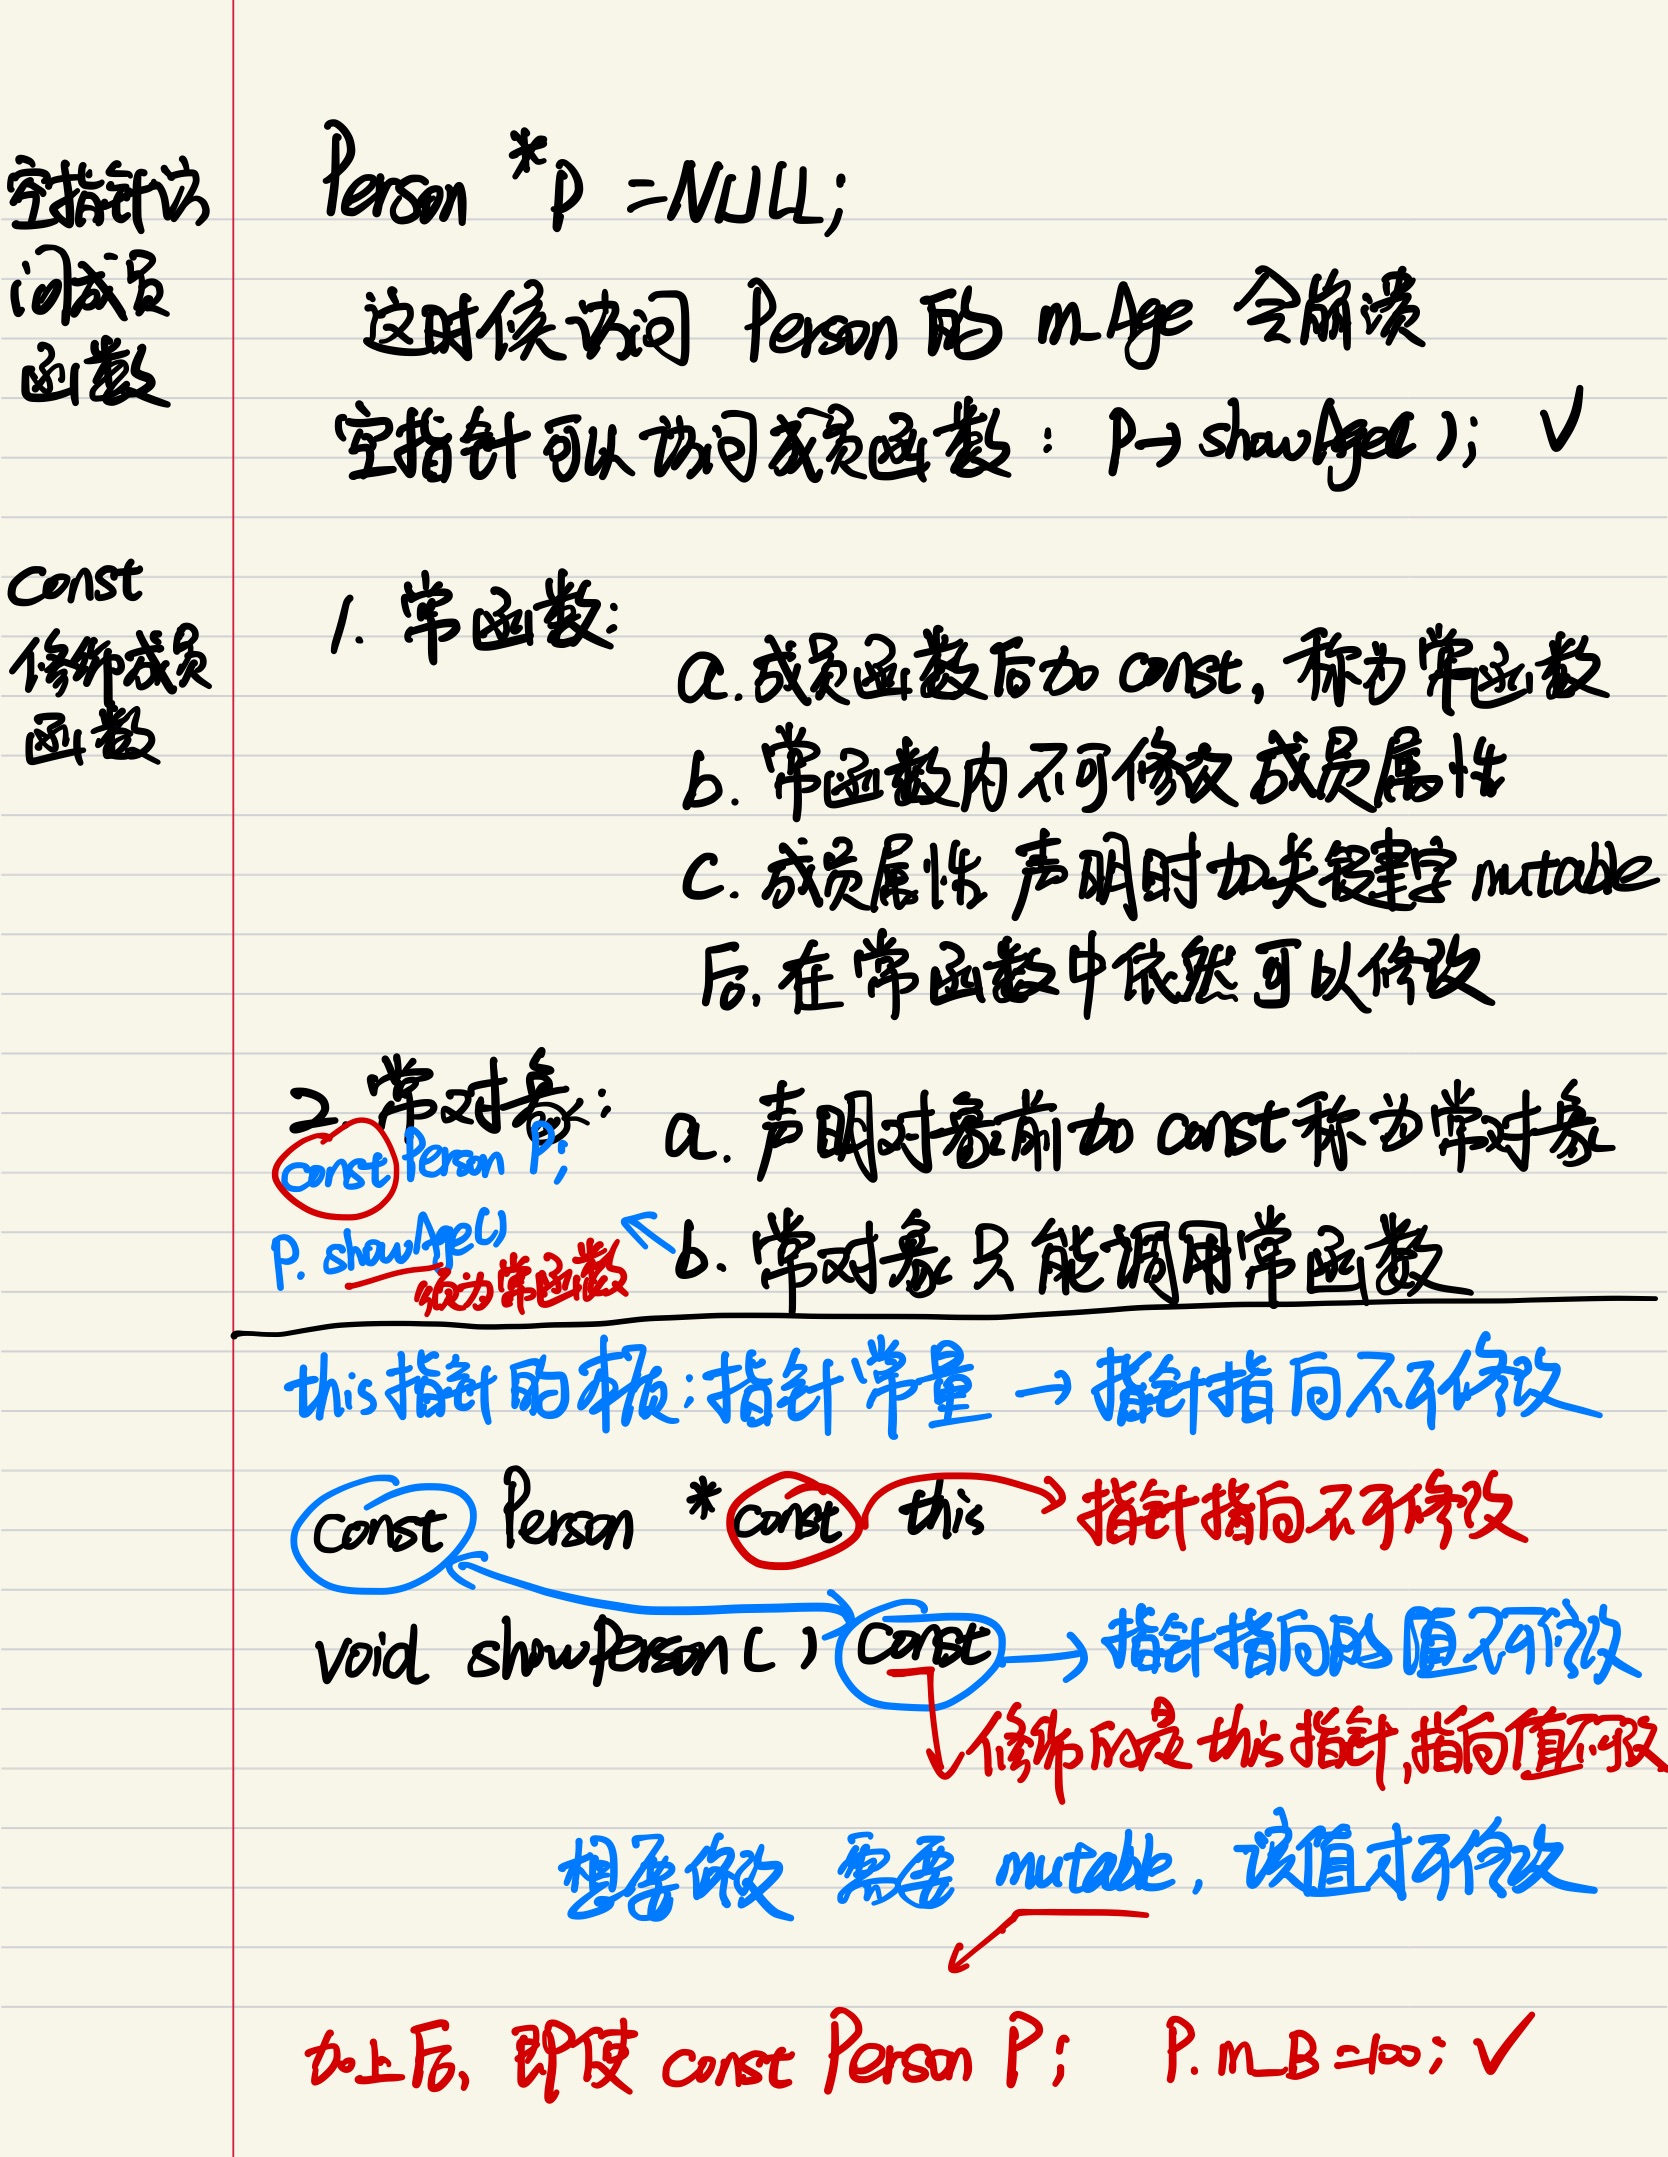 空指针访
问成员
函数
Person *p =NULL;
这时候访问 Person 的 m_Age 会崩溃
空指针可以访问成员函数: P→showAge(); ✓
const
修饰成员
函数
1. 常函数:
a.成员函数后加 const, 称为常函数
b. 常函数内不可修改成员属性
c. 成员属性声明时加关键字 mutable
后, 在常函数中依然可以修改
2. 常对象:
a. 声明对象前加 const 称为常对象
const Person P;
b. 常对象只能调用常函数
P. showAge()
须为常函数
this指针的本质:指针常量 → 指针指向不可修改
const Person * const this → 指针指向不可修改
void showPerson() const → 指针指向的值不可修改
修饰的是 this 指针,指向值不可改
想要修改 需要 mutable, 该值才可修改
加上后, 即使 const Person P; P.m_B=100; ✓